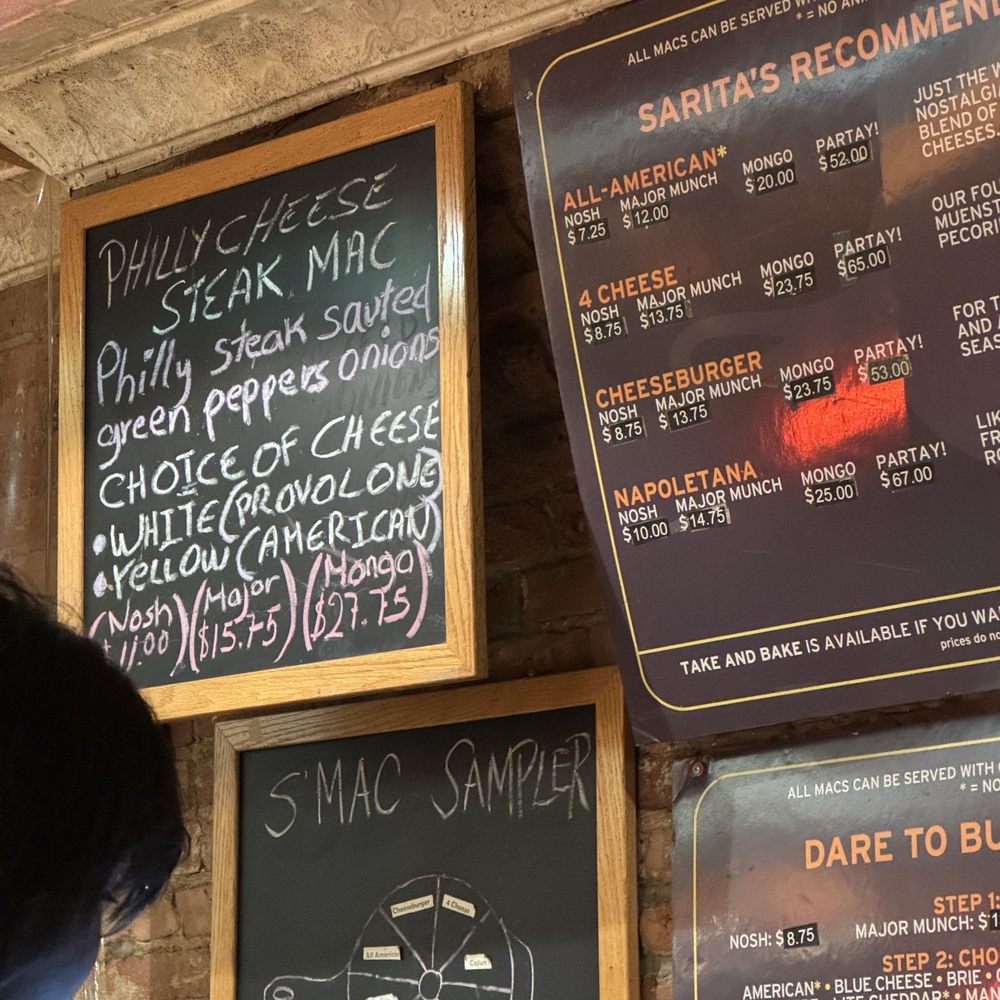 PHILLY CHEESE
STEAK MAC
Philly steak sauted
green peppers onions
CHOICE OF CHEESE
•WHITE (PROVOLONE)
•YELLOW (AMERICAN)
(Nosh) (Major) (Monga)
$11.00) ($15.75) ($27.75)
S'MAC SAMPLER
Cheeseburger
4 Cheese
All American
Cajun
ALL MACS CAN BE SERVED
* = NO
SARITA'S
ALL-AMERICAN*
NOSH MAJOR MUNCH MONGO PARTAY!
$7.25 $12.00 $20.00 $52.00
JUST THE
NOSTALGI
BLEND OF
CHEESES.
4 CHEESE
NOSH MAJOR MUNCH MONGO PARTAY!
$8.75 $13.75 $23.75 $65.00
OUR FOU
MUENST
PECORI
CHEESEBURGER
NOSH MAJOR MUNCH MONGO PARTAY!
$8.75 $13.75 $23.75 $53.00
FOR T
AND
SEAS
NAPOLETANA
NOSH MAJOR MUNCH MONGO PARTAY!
$10.00 $14.75 $25.00 $67.00
LIK
FR
RO
TAKE AND BAKE IS AVAILABLE IF YOU WA
prices do no
ALL MACS CAN BE SERVED WITH
* = NO
DARE TO BU
STEP 1:
NOSH: $8.75 MAJOR MUNCH: $1
STEP 2: CHO
AMERICAN* • BLUE CHEESE • BRIE •